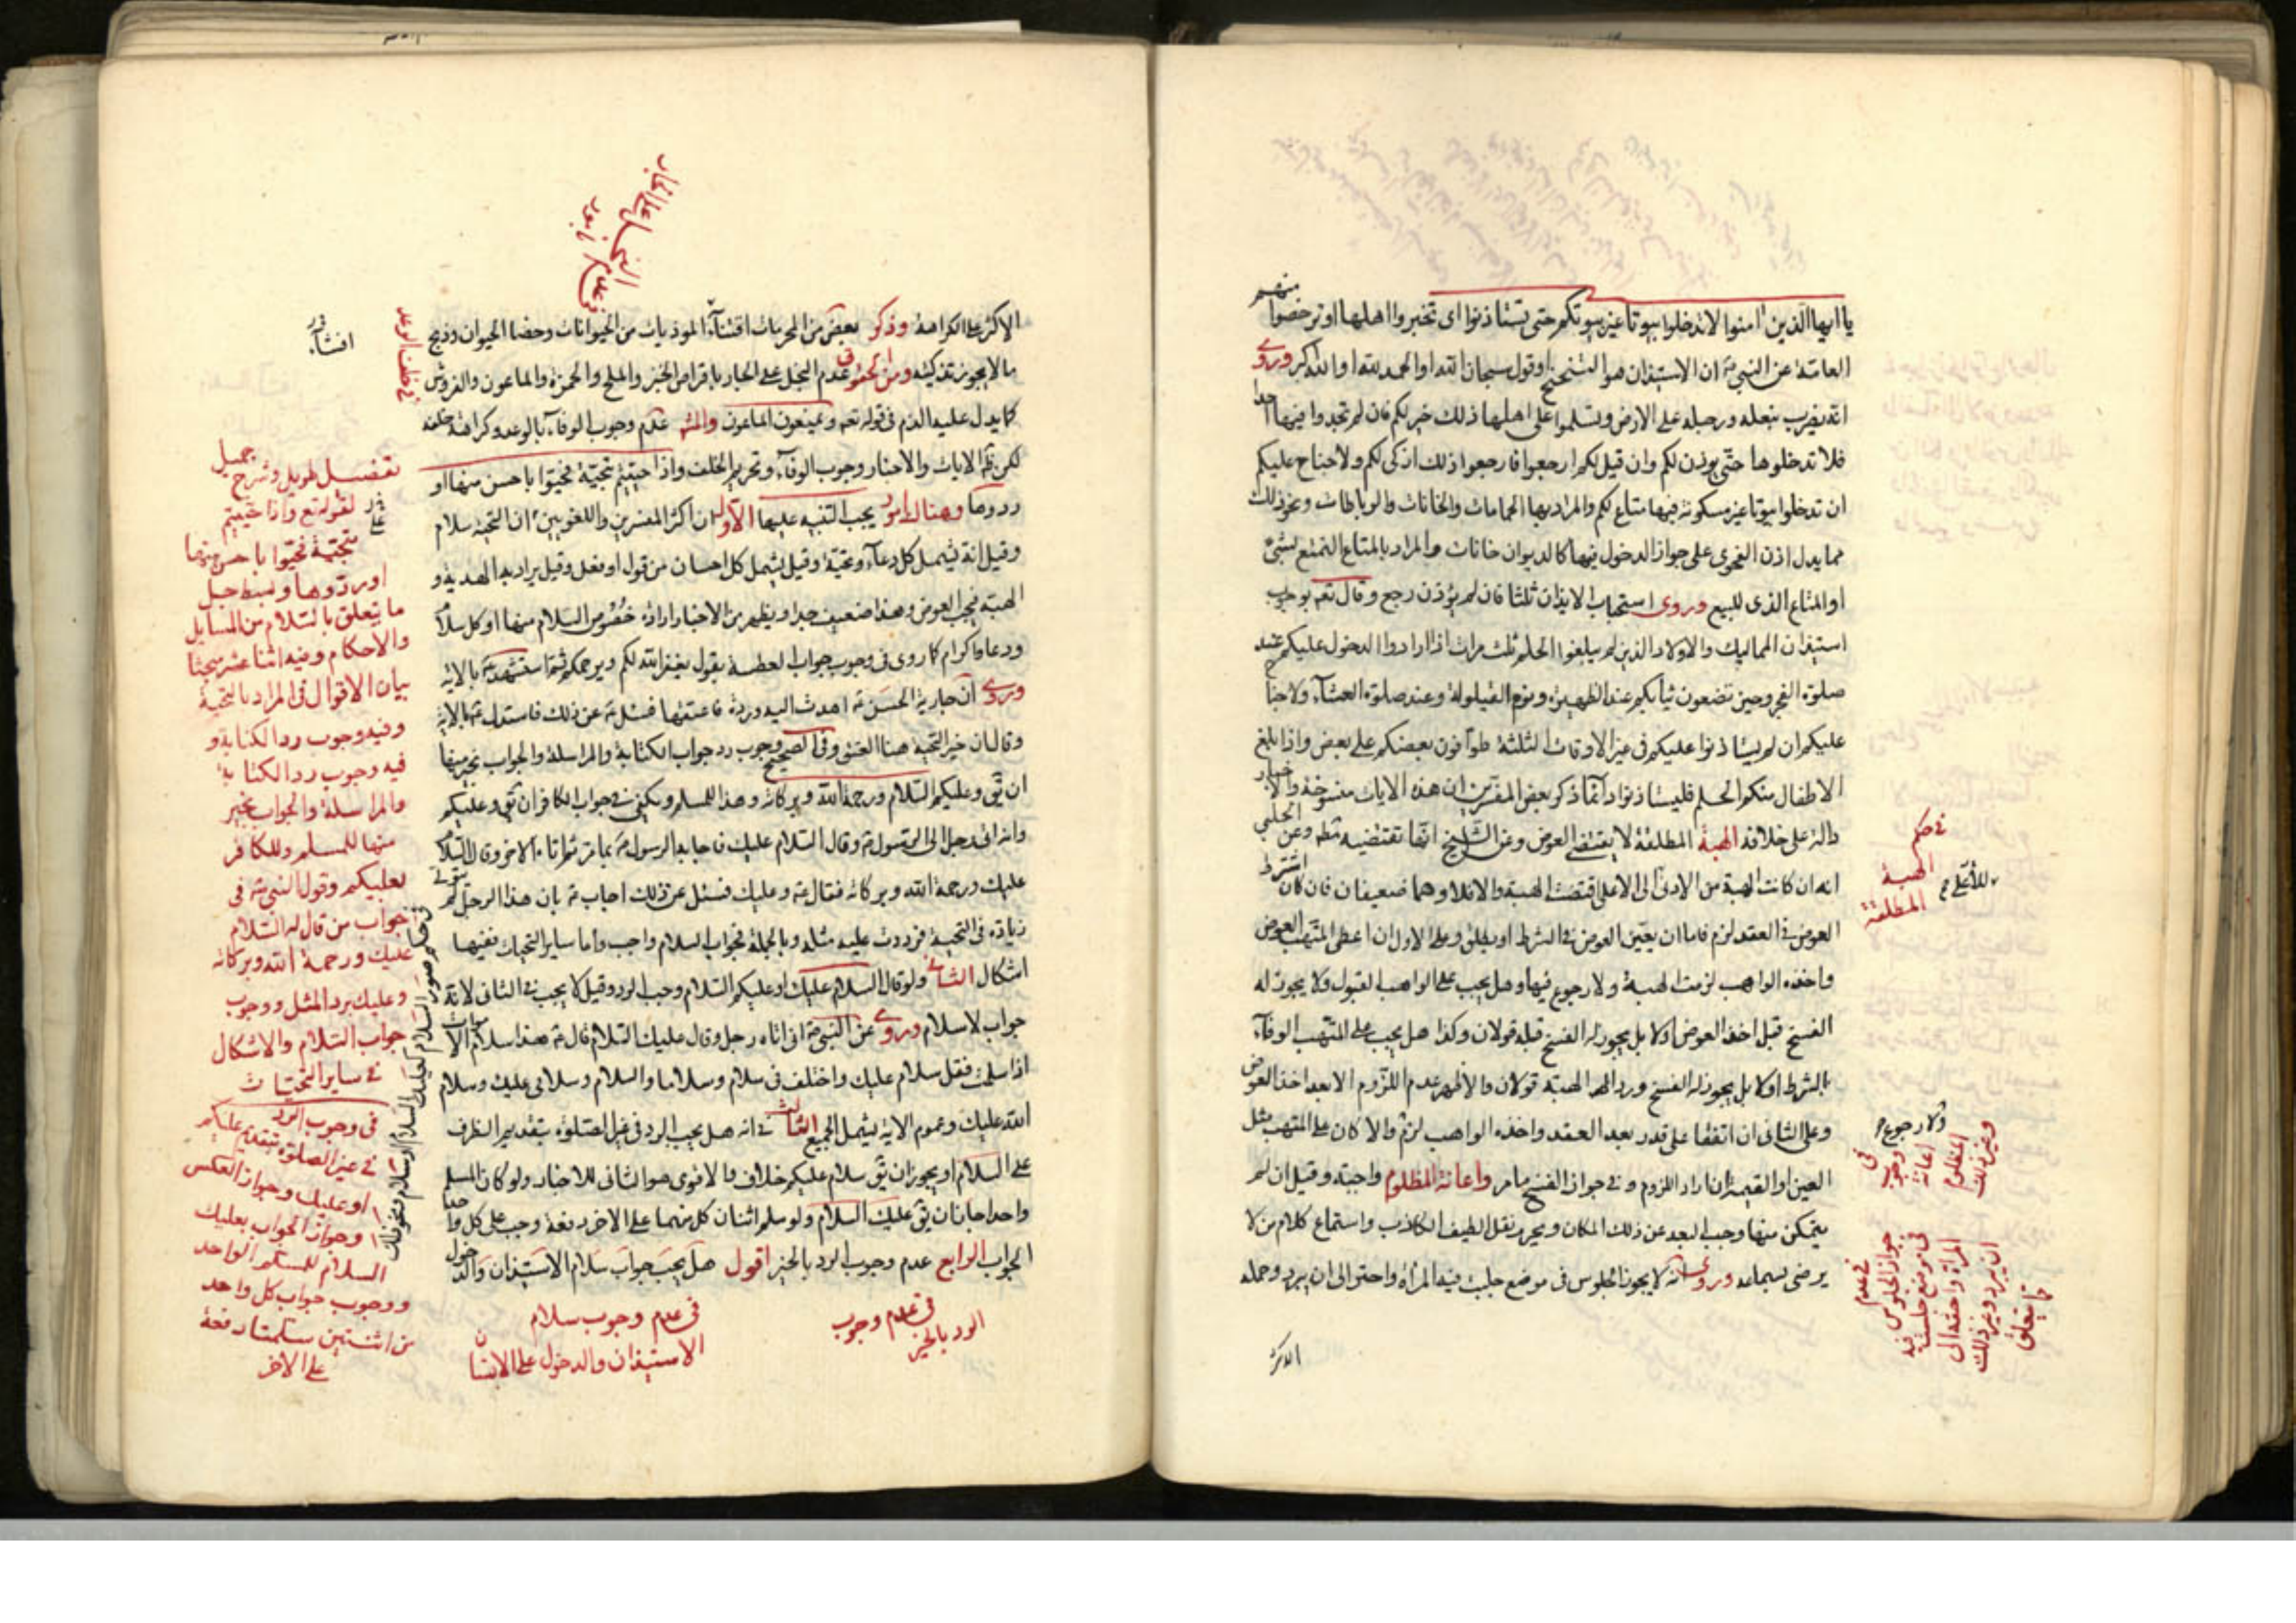 يا ايها الذين امنوا لا تدخلوا بيوتا غير بيوتكم حتى تستاذنوا اى تخبروا اهلها او ترخصوا منهم
العامة عن النبى ان الاستيذان هو التنحنح او قول سبحان الله او الحمد لله او الله اكبر وروى
انه يضرب بنعله ورجله على الارض وتسلموا على اهلها ذلك خير لكم فان لم تجدوا فيها احدا
فلا تدخلوها حتى يوذن لكم وان قيل لكم ارجعوا فارجعوا ذلك ازكى لكم ولا جناح عليكم
ان تدخلوا بيوتا غير مسكونة فيها متاع لكم والمراد بها الحمامات والخانات والرباطات ونحو ذلك
مما يدل اذن الفحوى على جواز الدخول فيها كالديوان خانات والمراد بالمتاع التمتع بشئ
او المتاع الذى للبيع وروى استحباب الايذان ثلثا فان لم يؤذن رجع وقال تعه بوجوب
استيذان المماليك والاولاد الذين لم يبلغوا الحلم ثلث مرات اذا ارادوا الدخول عليكم عند
صلوة الفجر وحين تضعون ثيابكم عند الظهيرة ونوم القيلولة وعند صلوة العشآء ولا جنا
عليكم ان لم يستاذنوا عليكم فى غير الاوقات الثلثة طوافون بعضكم على بعض واذا بلغ
الاطفال منكم الحلم فليستاذنوا دائما ذكر بعض المفسرين ان هذه الايات منسوخة والاخبار
دالة على خلافه الهبة المطلقة لا يقتضى العوض وعن الشيخ انها تقتضيه مطه وعن الحلبى
انه ان كانت الهبة من الادنى الى الاعلى اقتضت الهبة والا فلا وهما ضعيفان فان كان اشترط
العوض فى العقد لزم فاما ان يعين العوض فى الشرط او يطلق وعلى الاول ان اعطى المتهب العوض
واخذه الواهب لزمت الهبة ولا رجوع فيها وهل يجب على الواهب القبول ولا يجوز له
الفسخ قبل اخذ العوض اولا بل يجوز له الفسخ قبله قولان وكذا هل يجب على المتهب الوفآء
بالشرط اولا بل يجوز له الفسخ ورد الهبة قولان والاظهر عدم اللزوم الا بعد اخذ العوض
وعلى الثانى ان اتفقا على قدر بعد العقد واخذه الواهب لزم والا كان على المتهب مثل
العين او القيمة ان اراد اللزوم وفى جواز الفسخ ما مر واعانة المظلوم واجبة وقيل ان لم
يتمكن منها وجب البعد عن ذلك المكان ويحرم نقل الطيف الكاذب واستماع كلام من لا
يرضى بسماعه وروى انه لا يجوز الجلوس فى موضع جلست فيه المرأة واحتوالى ان يبرد وحمله
فى حكم
الهبة
المطلقة
للأعلى
ولا رجوع
فى وجوب
اعانة
المظلوم
وغير ذلك
فى عدم
جواز الجلوس
فى موضع جلست فيه
المرأة
ان يبرد وغير ذلك
مما يتعلق
الاكثر
الاكثر على الكراهة وذكر بعض من المحرمات اقتنآء الموذيات من الحيوانات وخصا الحيوان وذبح
ما لا يجوز تذكيته ومن الحقوق عدم البخل على الجار باقراض الخبز والملح والخمرة والماعون والفروش
كما يدل عليه الذم فى قوله تعه ويمنعون الماعون والمشه عدم وجوب الوفآء بالوعد وكراهة خلفه
لكن ظه الايات والاخبار وجوب الوفآء وتحريم الخلف واذا حييتم بتحية فحيوا باحسن منها او
ردوها وهناك امور يجب التنبه عليها الاول ان اكثر المفسرين واللغويين ان التحية سلام
وقيل انه يشمل كل دعآء وتحية وقيل يشمل كل احسان من قول او فعل وقيل يراد به الهدية و
الهبة فيجب العوض وهذا ضعيف جدا ويظهر من الاخبار ارادة خصوص السلام منها او كل سلام
ودعا واكرام كما روى فى وجوب جواب العطسة بقول يغفر الله لكم ويرحمكم ثم استشهد بالاية
وروى ان جارية الحسن اهدت اليه وردة فاعتقها فسئل عن ذلك فاستدل بالاية
وقال ان خير التحية هنا العتق وفى الصحيح وجوب رد جواب الكتابة والمراسلة والجواب بخير منها
ان يق وعليكم السلام ورحمة الله وبركاته وهذا للمسلم ويكفى فى جواب الكافر ان يق وعليكم
وانه اتى رجل الى الرسول وقال السلام عليك فاجابه الرسول بما مر ثم اتاه الاخر وقال السلام
عليك ورحمة الله وبركاته فقال وعليك فسئل عن ذلك اجاب بان هذا الرجل لم يبق لى
زيادة فى التحية فرددت عليه مثله وبالجملة فجواب السلام واجب واما ساير التحيات ففيها
اشكال الثانى ولو قال السلام عليك او عليكم السلام وجب الرد وقيل لا يجب فى الثانى لانه
جواب لا سلام وروى عن النبى انه اتاه رجل وقال عليك السلام قال هذا سلام الاموات
اذا سلمت فقل سلام عليك واختلف فى سلام وسلاما والسلام وسلامى عليك وسلام
الله عليك وعموم الاية يشمل الجميع الثالث فى انه هل يجب الرد فى غير الصلوة بتقديم الظرف
على السلام او يجوز ان يق سلام عليكم خلاف والاقوى هو الثانى للاخبار ولو كان المسلم
واحدا جاز ان يق عليك السلام ولو سلم اثنان كل منهما على الاخر دفعة وجب على كل واحد
الجواب الرابع عدم وجوب الرد بالخير اقول هل يجب جواب سلام الاستيذان والدخول
فى خلف الوعد
اقتنآء
تفصيل طويل وشرح جميل
لقوله تع واذا حييتم
بتحية فحيوا باحسن منها
او ردوها وبسط جميل
ما يتعلق بالسلام من المسايل
والاحكام وفيه اثنا عشر مبحثا
بيان الاقوال فى المراد بالتحية
وفيه وجوب رد الكتابة و
فيه وجوب رد الكتابة
والمراسلة والجواب بخير
منها للمسلم وللكافر
بعليكم وقول النبى فى
جواب من قال له السلام
عليك ورحمة الله وبركاته
وعليك برد المثل ووجوب
جواب السلام والاشكال
فى ساير التحيات
فى وجوب الرد
فى غير الصلوة بتقديم عليكم
او عليك وجواز العكس
وجواز الجواب بعليك
السلام للمسلم الواحد
ووجوب جواب كل واحد
من اثنتين سلمتا دفعة
على الاخر
فى عدم وجوب
الرد بالخير
فى عدم وجوب سلام
الاستيذان والدخول على الانسان